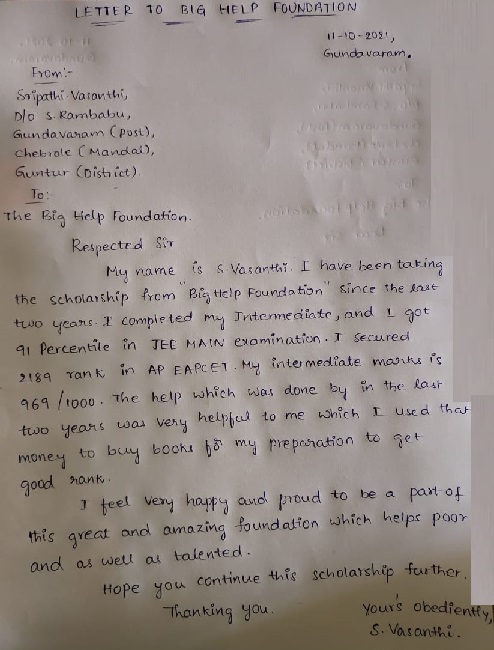 LETTER TO BIG HELP FOUNDATION
11-10-2021,
Gundavaram.
From:-
Sripathi Vasanthi,
D/o S. Rambabu,
Gundavaram (Post),
Chebrole (Mandal),
Guntur (District)
To:-
The Big Help Foundation.
Respected Sir
My name is S. Vasanthi. I have been taking
the scholarship from "Big Help Foundation" since the last
two years. I completed my Intermediate, and I got
91 Percentile in JEE MAIN examination. I secured
2189 rank in AP EAPCET. My intermediate marks is
969/1000. The help which was done by in the last
two years was very helpful to me which I used that
money to buy books for my preparation to get
good rank.
I feel very happy and proud to be a part of
this great and amazing foundation which helps poor
and as well as talented.
Hope you continue this scholarship further.
Thanking you.
Your's obediently,
S. Vasanthi.